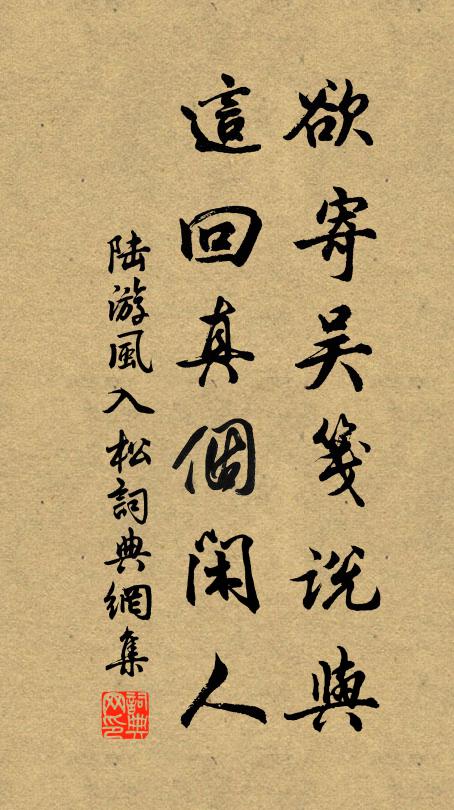 欲寄吴笺说與
這回真個閑人
陆游風入松詞典網集
詞典网印